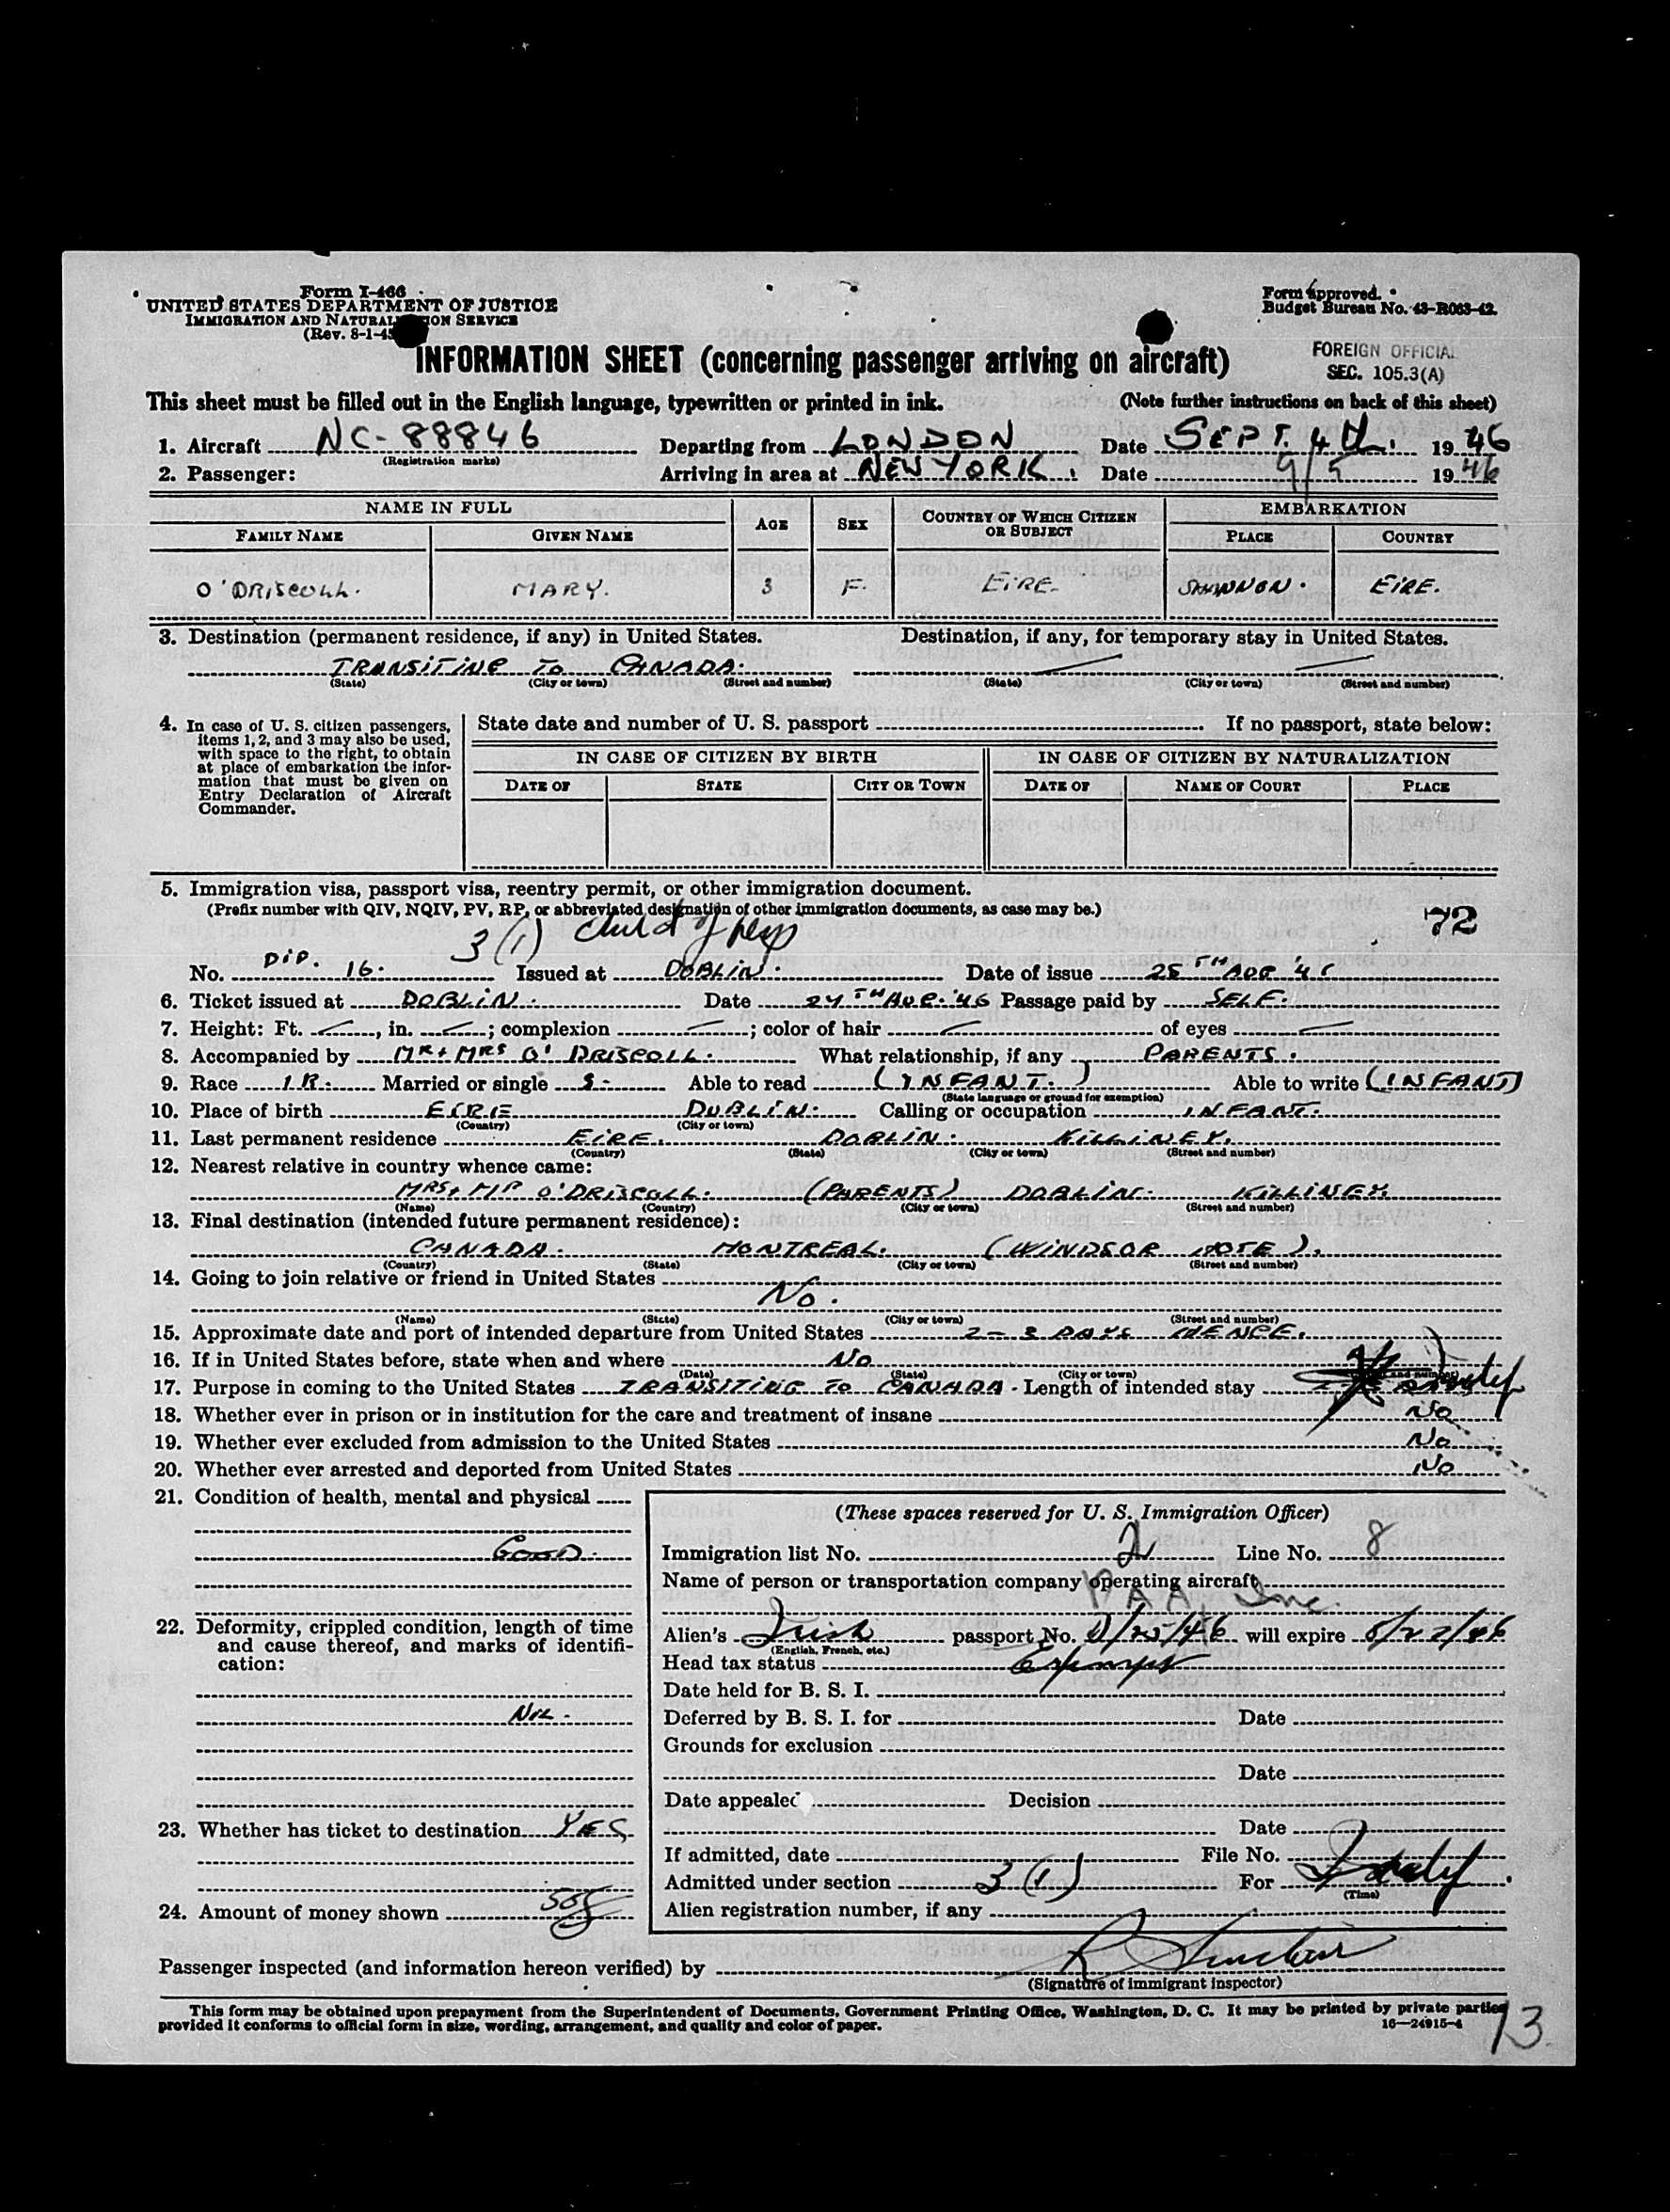 Form I-466
UNITED STATES DEPARTMENT OF JUSTICE
IMMIGRATION AND NATURALIZATION SERVICE
(Rev. 8-1-45
Form approved.
Budget Bureau No. 43-R063-42.
INFORMATION SHEET (concerning passenger arriving on aircraft)
FOREIGN OFFICIAL
SEC. 105.3(A)
This sheet must be filled out in the English language, typewritten or printed in ink. (Note further instructions on back of this sheet)
1. Aircraft NC-88846 Departing from LONDON Date SEPT. 4th. 1946
(Registration marks)
2. Passenger: Arriving in area at NEW YORK. Date 9/5 1946
NAME IN FULL AGE SEX COUNTRY OF WHICH CITIZEN OR SUBJECT EMBARKATION
FAMILY NAME GIVEN NAME PLACE COUNTRY
O'DRISCOLL. MARY. 3 F. EIRE. SHANNON. EIRE.
3. Destination (permanent residence, if any) in United States. Destination, if any, for temporary stay in United States.
TRANSITING TO CANADA.
(State) (City or town) (Street and number) (State) (City or town) (Street and number)
4. In case of U. S. citizen passengers, items 1, 2, and 3 may also be used, with space to the right, to obtain at place of embarkation the information that must be given on Entry Declaration of Aircraft Commander.
State date and number of U. S. passport If no passport, state below:
IN CASE OF CITIZEN BY BIRTH IN CASE OF CITIZEN BY NATURALIZATION
DATE OF STATE CITY OR TOWN DATE OF NAME OF COURT PLACE
5. Immigration visa, passport visa, reentry permit, or other immigration document.
(Prefix number with QIV, NQIV, PV, RP, or abbreviated designation of other immigration documents, as case may be.)
72
3(1) Child of
No. DIP. 16. Issued at DUBLIN. Date of issue 25TH AUG '46
6. Ticket issued at DUBLIN. Date 24TH AUG. '46 Passage paid by SELF.
7. Height: Ft. , in. ; complexion ; color of hair of eyes
8. Accompanied by MR + MRS O'DRISCOLL. What relationship, if any PARENTS.
9. Race IR. Married or single S. Able to read (INFANT.) Able to write (INFANT)
(State language or ground for exemption)
10. Place of birth EIRE DUBLIN. Calling or occupation INFANT.
(Country) (City or town)
11. Last permanent residence EIRE. DUBLIN. KILLINEY.
(Country) (State) (City or town) (Street and number)
12. Nearest relative in country whence came:
MRS + MR O'DRISCOLL. (PARENTS) DUBLIN. KILLINEY.
(Name) (Country) (City or town) (Street and number)
13. Final destination (intended future permanent residence):
CANADA. MONTREAL. (WINDSOR HOTE).
(Country) (State) (City or town) (Street and number)
14. Going to join relative or friend in United States
No.
(Name) (State) (City or town) (Street and number)
15. Approximate date and port of intended departure from United States 2-3 DAYS HENCE.
16. If in United States before, state when and where No
(Date) (State) (City or town)
17. Purpose in coming to the United States TRANSITING TO CANADA. Length of intended stay
18. Whether ever in prison or in institution for the care and treatment of insane No
19. Whether ever excluded from admission to the United States No
20. Whether ever arrested and deported from United States No
21. Condition of health, mental and physical
GOOD.
22. Deformity, crippled condition, length of time and cause thereof, and marks of identification:
NIL.
23. Whether has ticket to destination YES
24. Amount of money shown
(These spaces reserved for U. S. Immigration Officer)
Immigration list No. 2 Line No. 8
Name of person or transportation company operating aircraft
PAA, Inc.
Alien's Irish passport No. will expire
(English, French, etc.)
Head tax status Exempt
Date held for B. S. I.
Deferred by B. S. I. for Date
Grounds for exclusion
Date
Date appealed Decision
Date
If admitted, date File No.
Admitted under section 3(1) For
(Time)
Alien registration number, if any
Passenger inspected (and information hereon verified) by R Sinclair
(Signature of immigrant inspector)
This form may be obtained upon prepayment from the Superintendent of Documents, Government Printing Office, Washington, D. C. It may be printed by private parties
provided it conforms to official form in size, wording, arrangement, and quality and color of paper. 16—24915-4
13